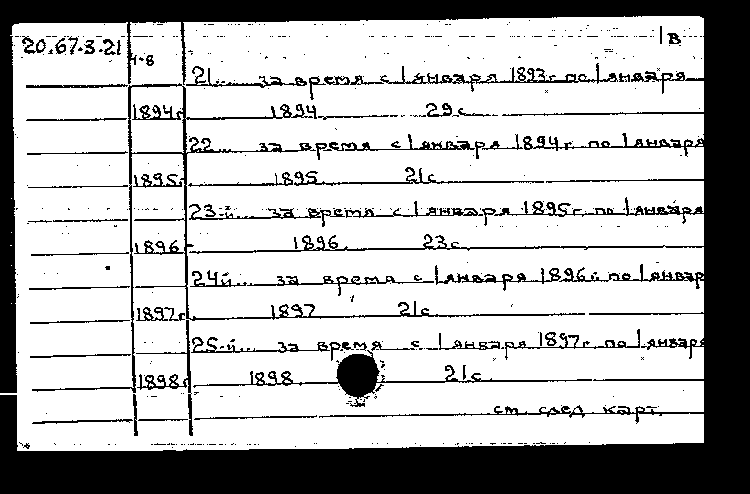 20.67.3.21
4-8
1в
21... за время с 1 января 1893г. по 1 января
1894г. 1894. 29с.
22... за время с 1 января 1894г. по 1 января
1895г. 1895. 21с.
23-й... за время с 1 января 1895г. по 1 января
1896г. 1896. 23с.
24й... за время с 1 января 1896г. по 1 январ
1897г. 1897 21с.
25-й... за время с 1 января 1897г. по 1 января
1898г. 1898. 21с.
см. след. карт.